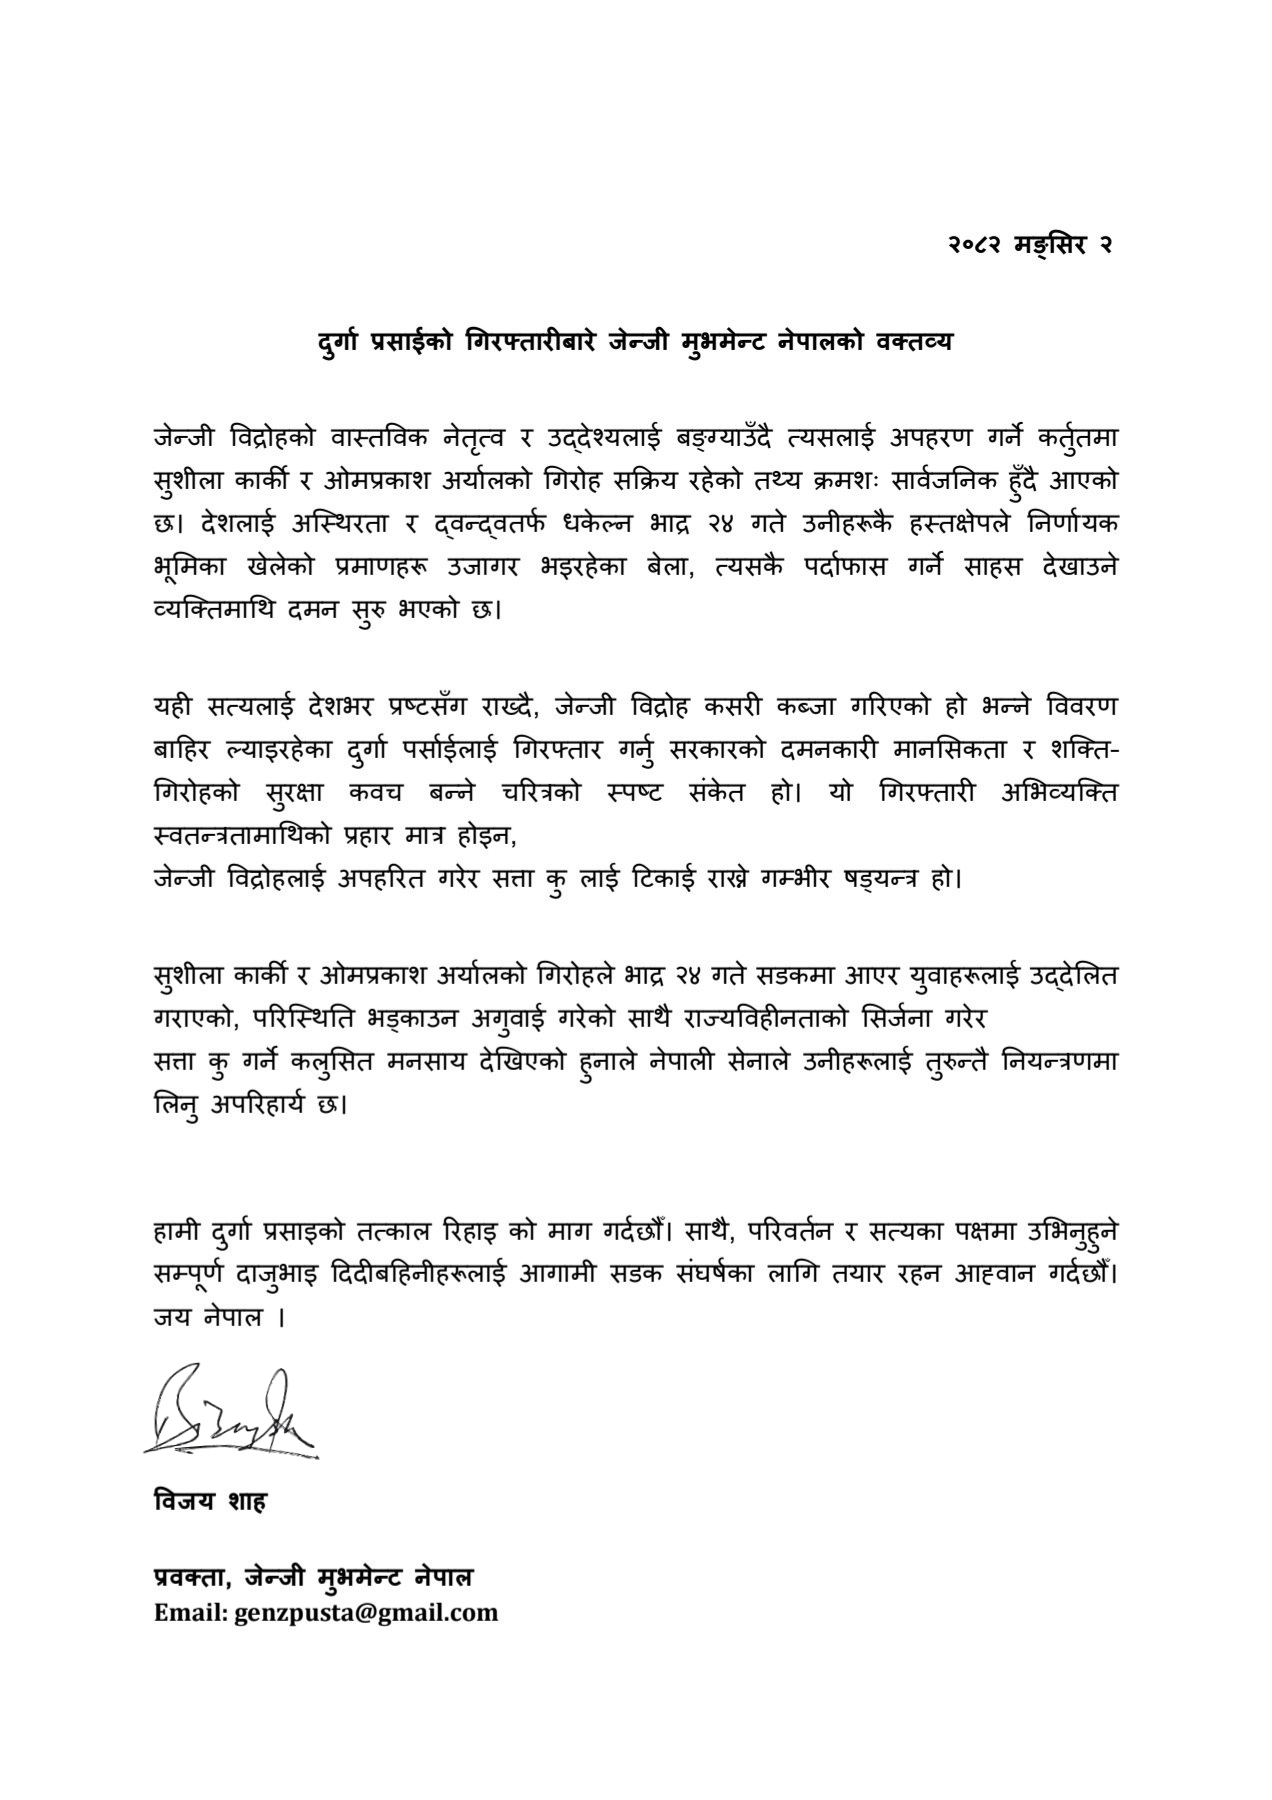 २०८२ मङ्सिर २
दुर्गा प्रसाईको गिरफ्तारीबारे जेन्जी मुभमेन्ट नेपालको वक्तव्य
जेन्जी विद्रोहको वास्तविक नेतृत्व र उद्देश्यलाई बङ्ग्याउँदै त्यसलाई अपहरण गर्ने कर्तुतमा
सुशीला कार्की र ओमप्रकाश अर्यालको गिरोह सक्रिय रहेको तथ्य क्रमशः सार्वजनिक हुँदै आएको
छ। देशलाई अस्थिरता र द्वन्द्वतर्फ धकेल्न भाद्र २४ गते उनीहरूकै हस्तक्षेपले निर्णायक
भूमिका खेलेको प्रमाणहरू उजागर भइरहेका बेला, त्यसकै पर्दाफास गर्ने साहस देखाउने
व्यक्तिमाथि दमन सुरु भएको छ।
यही सत्यलाई देशभर प्रष्टसँग राख्दै, जेन्जी विद्रोह कसरी कब्जा गरिएको हो भन्ने विवरण
बाहिर ल्याइरहेका दुर्गा पर्साईलाई गिरफ्तार गर्नु सरकारको दमनकारी मानसिकता र शक्ति-
गिरोहको सुरक्षा कवच बन्ने चरित्रको स्पष्ट संकेत हो। यो गिरफ्तारी अभिव्यक्ति
स्वतन्त्रतामाथिको प्रहार मात्र होइन,
जेन्जी विद्रोहलाई अपहरित गरेर सत्ता कु लाई टिकाई राख्ने गम्भीर षड्यन्त्र हो।
सुशीला कार्की र ओमप्रकाश अर्यालको गिरोहले भाद्र २४ गते सडकमा आएर युवाहरूलाई उद्देलित
गराएको, परिस्थिति भड्काउन अगुवाई गरेको साथै राज्यविहीनताको सिर्जना गरेर
सत्ता कु गर्ने कलुसित मनसाय देखिएको हुनाले नेपाली सेनाले उनीहरूलाई तुरुन्तै नियन्त्रणमा
लिनु अपरिहार्य छ।
हामी दुर्गा प्रसाइको तत्काल रिहाइ को माग गर्दछौँ। साथै, परिवर्तन र सत्यका पक्षमा उभिनुहुने
सम्पूर्ण दाजुभाइ दिदीबहिनीहरूलाई आगामी सडक संघर्षका लागि तयार रहन आह्वान गर्दछौँ।
जय नेपाल ।
विजय शाह
प्रवक्ता, जेन्जी मुभमेन्ट नेपाल
Email: genzpusta@gmail.com